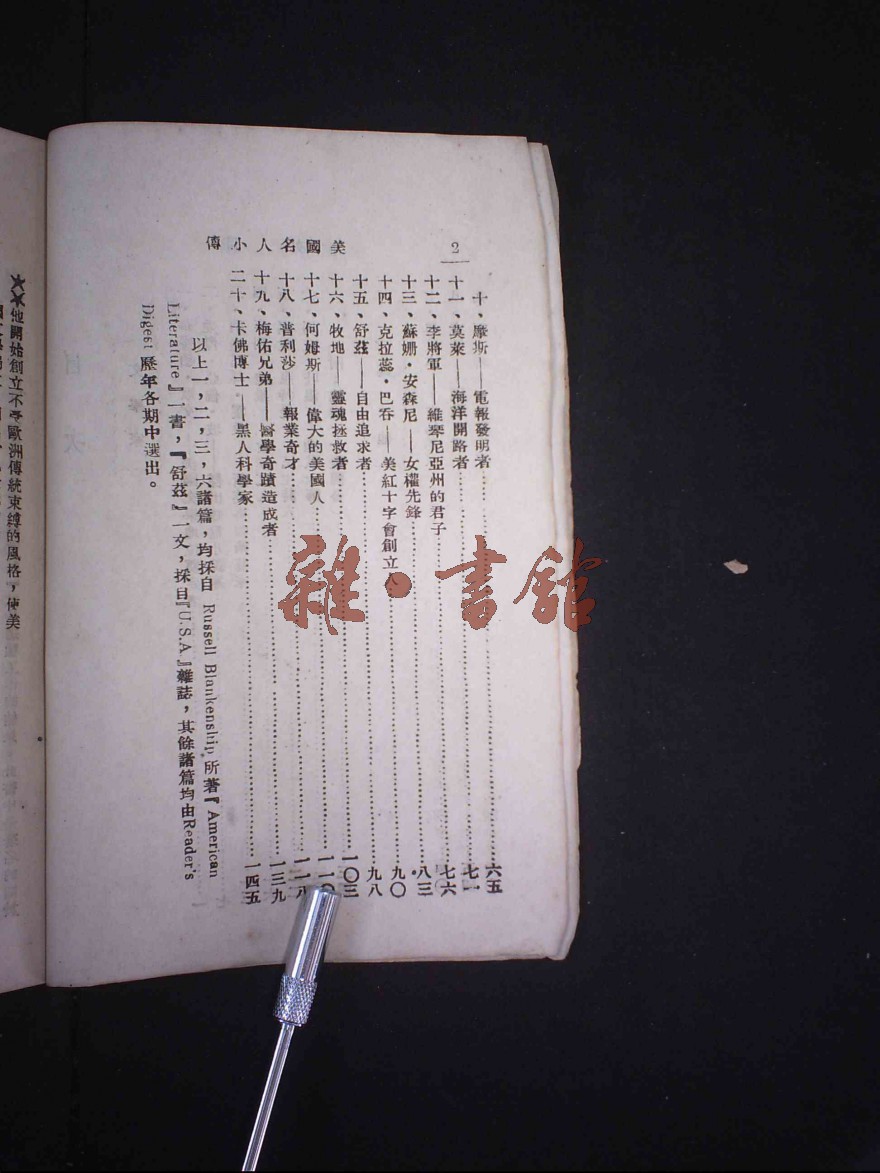 2
美國名人小傳
十、摩斯——電報發明者……六五
十一、莫萊——海洋開路者……七一
十二、李將軍——維琴尼亞州的君子……七六
十三、蘇姍・安森尼——女權先鋒……八三
十四、克拉蕊・巴吞——美紅十字會創立人……九〇
十五、舒茲——自由追求者……九八
十六、牧地——靈魂拯救者……一〇三
十七、何姆斯——偉大的美國人……一一〇
十八、普利沙——報業奇才……一一八
十九、梅佑兄弟——醫學奇蹟造成者……一三九
二十、卡佛博士——黑人科學家……一四五
以上一,二,三,六諸篇,均採自 Russell Blankenship 所著『American
Literature』一書,『舒茲』一文,採自『U.S.A』雜誌,其餘諸篇均由Reader's
Digest 歷年各期中選出。
他開始創立不受歐洲傳統束縛的風格,使美
雜・書館